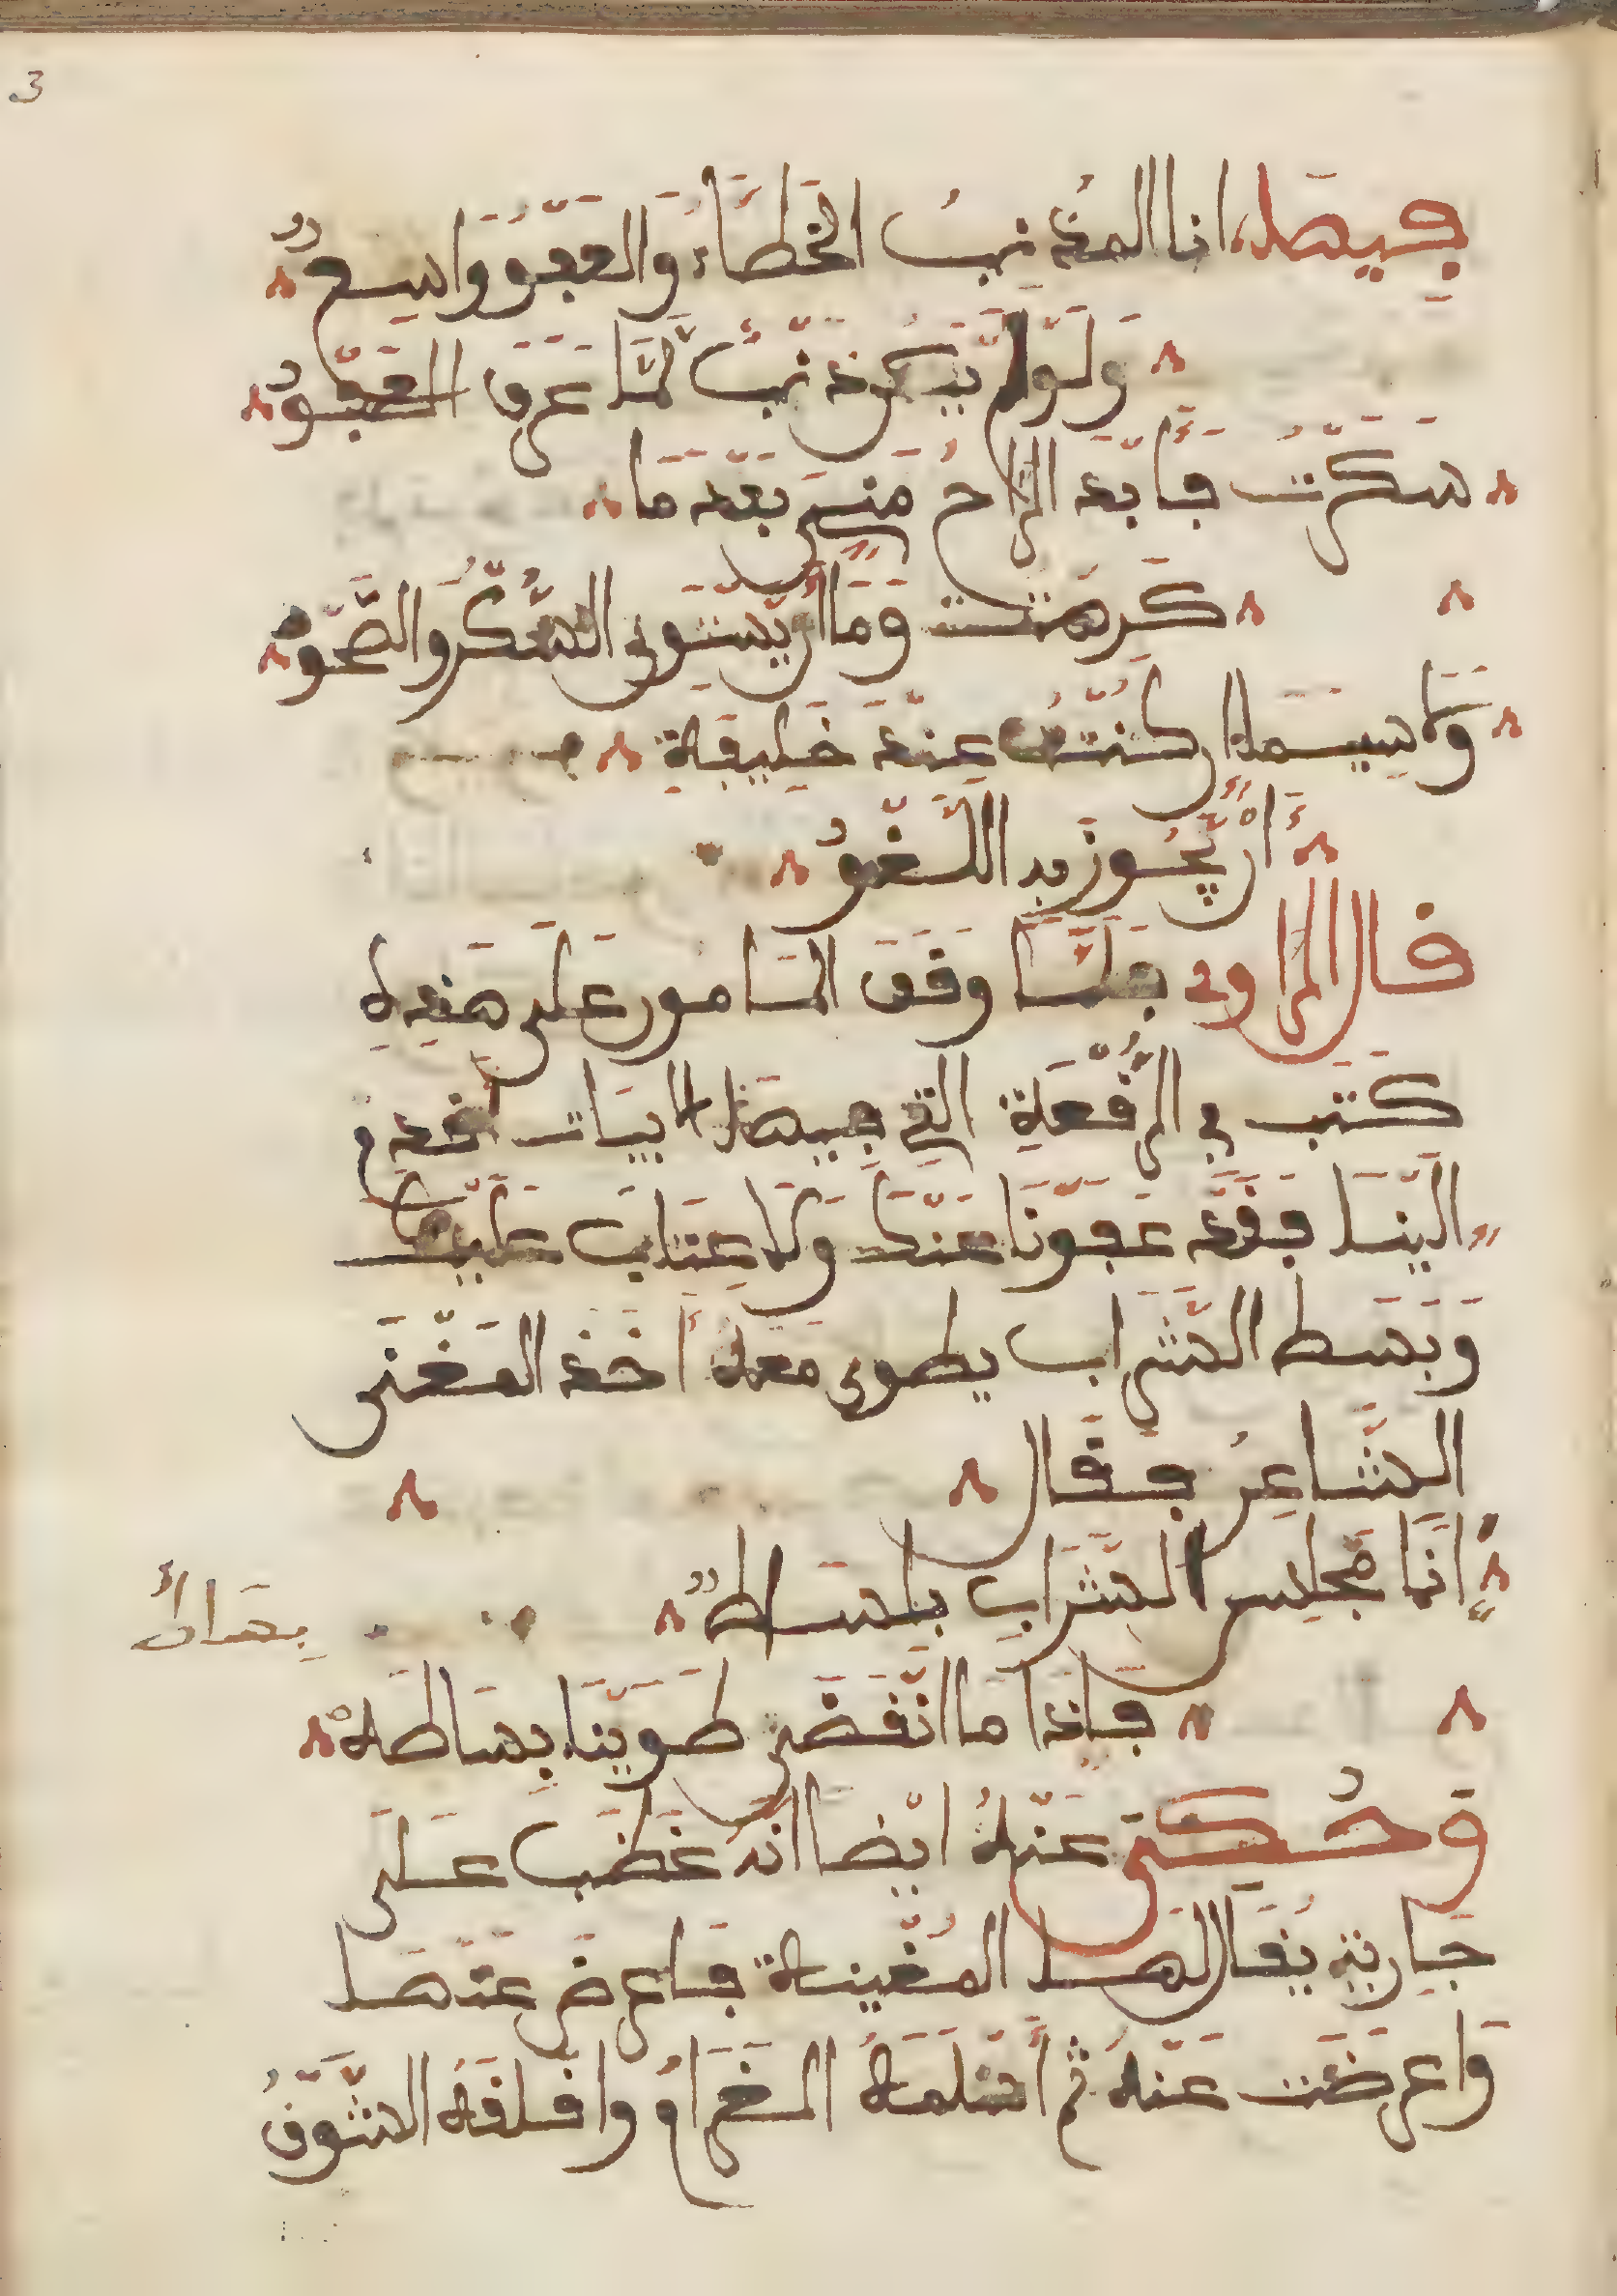 3
فيها انا المذنب الخطاء والعفو واسع
ولو لم يكن ذنب لما عرف العفو
سكرت فأبدا الراح مني بعد ما
كرهت وما ان يستوي السكر والصحو
ولا سيما ان كنت عند خليفة
أن يجوز به اللغو
قال الراوي فلما وقف المامور على هذه
كتب في الرقعة التي فيها الابيات ادخل
الينا فقد عفونا عنك ولا عتاب عليك
وبسط الشراب يطوى معه أخذ المغنى
الشاعر فقال
انما مجلس الشراب باسط
بساط
فإذا ما انقضى طوينا بساطه
وحكى عنه ايضا انه غضب على
جارية يقال لها المغنية فاعرض عنها
واعرضت عنه ثم أسلمه الغرام واقلقه الشوق